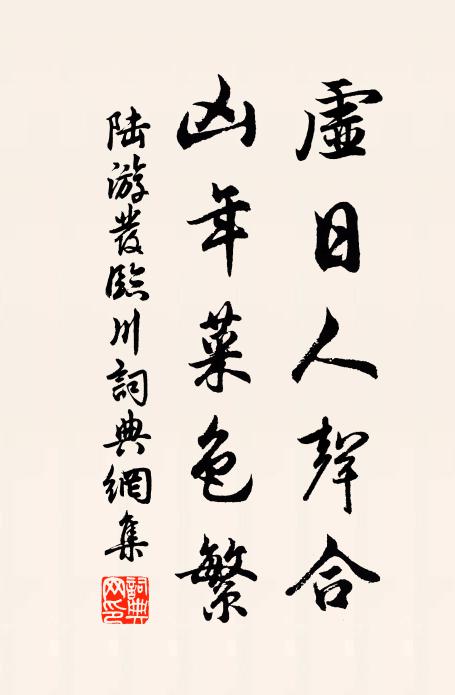 虛日人聲合
凶年菜色繁
陸游發臨川詞典網集
詞典網印